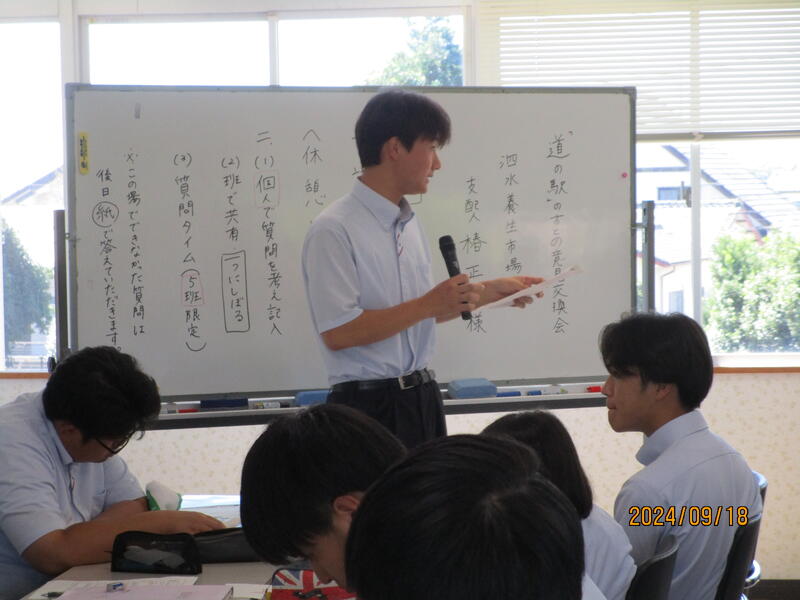 "道の駅"の方との意見交換会
泗水養生市場
支配人 椿 正 様
へ休憩
二、(1) 個人で質問を考え記入
(2) 班で共有 1つにしぼる
(3) 質問タイム(5班限定)
※この場でできなかた質問は
後日紙で答えていただきます。
2024/09/18